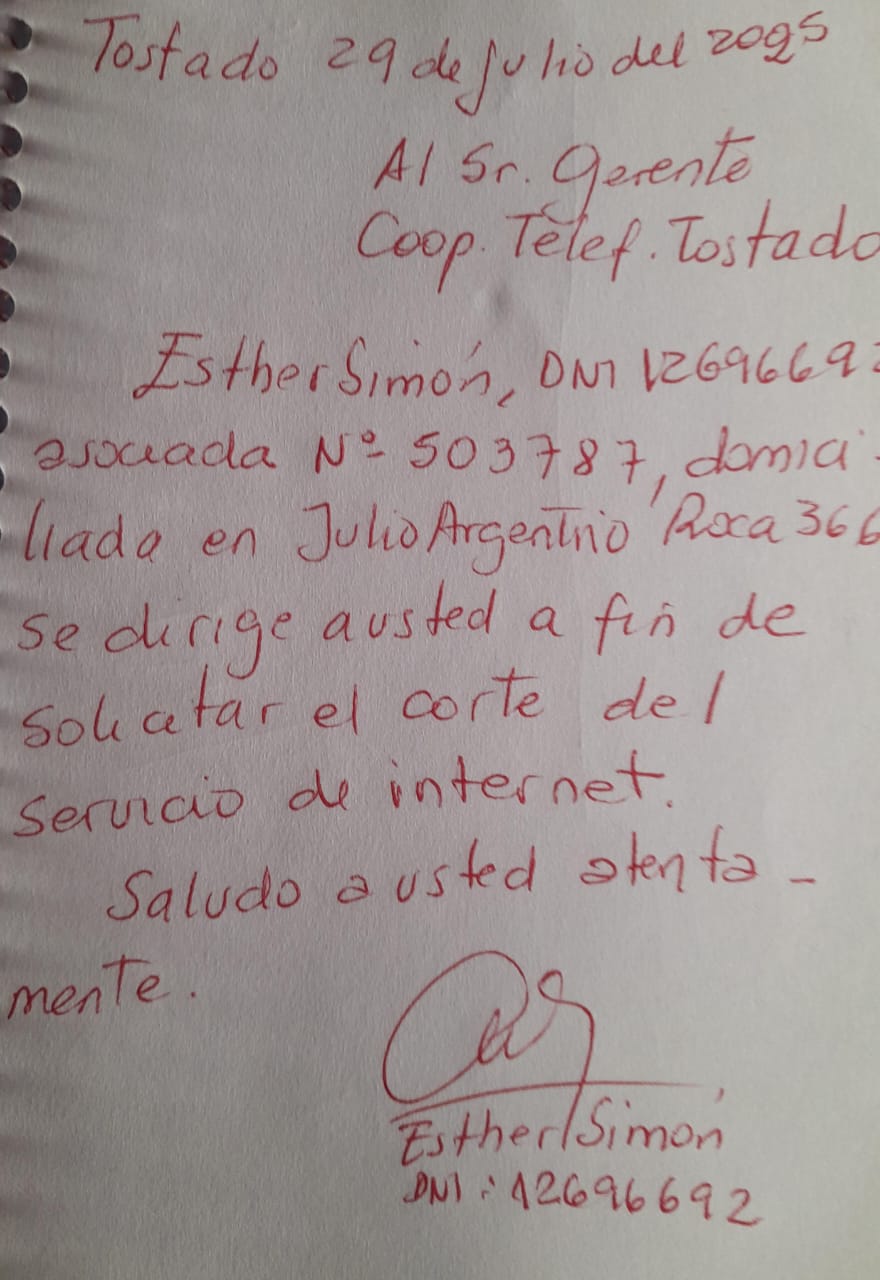 Tostado 29 de julio del 2025
Al Sr. Gerente
Coop. Telef. Tostado
Esther Simón, DNI 12696692
asociada Nº 503787, domici-
liada en Julio Argentino Roca 366
se dirige a usted a fin de
solicitar el corte del
servicio de internet.
Saludo a usted atenta-
mente.
Esther Simón
DNI: 12696692